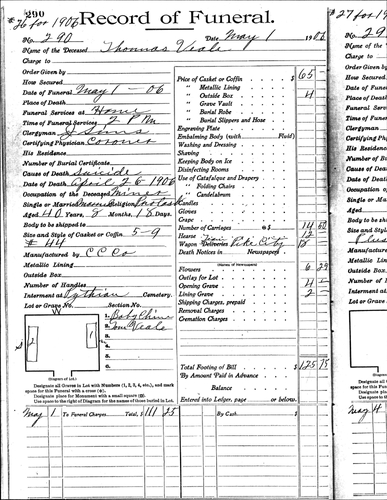 290
#26 for 1906
Record of Funeral.
No. 290
Date May 1 1906
Name of the Deceased Thomas Veale
Charge to
Order Given by
How Secured
Date of Funeral May 1 - 06
Place of Death
Funeral Services at Home
Time of Funeral Services 2 P M
Clergyman J Sims
Certifying Physician Coroner
His Residence
Number of Burial Certificate
Cause of Death Suicide
Date of Death April 26 1906
Occupation of the Deceased Miner
Single or Married Religion
Aged 40 Years, 8 Months, 18 Days.
Body to be shipped to
Size and Style of Casket or Coffin 5-9
# 44
Manufactured by C C Co
Metallic Lining
Outside Box
Number of Handles
Interment at Pythian Cemetery.
Lot or Grave No. Section No.
1. Baby
2. Tom Veale
3.
4.
5.
6.
7.
8.
(Diagram of Lot.)
Designate all Graves in Lot with Numbers (1, 2, 3, 4, etc.), and mark
space for this Funeral with a cross (x).
Designate place for Monument with a small square
Use space to the right of Diagram for the names of those buried in Lot.
Price of Casket or Coffin $ 65 -
" Metallic Lining
" Outside Box 4
" Grave Vault
" Burial Robe
" Burial Slippers and Hose
Engraving Plate
Embalming Body (with Fluid)
Washing and Dressing
Shaving
Keeping Body on Ice
Disinfecting Rooms
Use of Catafalque and Drapery
" Folding Chairs
" Candelabrum
Candles
Gloves
Crape
Number of Carriages 14 50
Hearse 12
Wagon Deliveries Pike City 18
Death Notices in Newspapers
Flowers 6 25
Opening Grave 4 -
Lining Grave 2 -
Shipping Charges, prepaid
Removal Charges
Cremation Charges
Total Footing of Bill $ 125 75
By Amount Paid in Advance
Balance
Entered into Ledger, page or below.
May 1 To Funeral Charges Total, $ 111 25 By Cash $
#27 for
No. 29
Name of the
Charge to
Order Given
How Secured
Date of Fun
Place of De
Funeral Ser
Time of Fun
Clergyman
Certifying
His Reside
Number of
Cause of De
Date of Dea
Occupation
Single or M
Aged
Body to be
Size and St
Manufacture
Metallic Li
Outside Bo
Number of
Interment
Lot or Gra
Designate
space for th
Designate
Use space
May 4